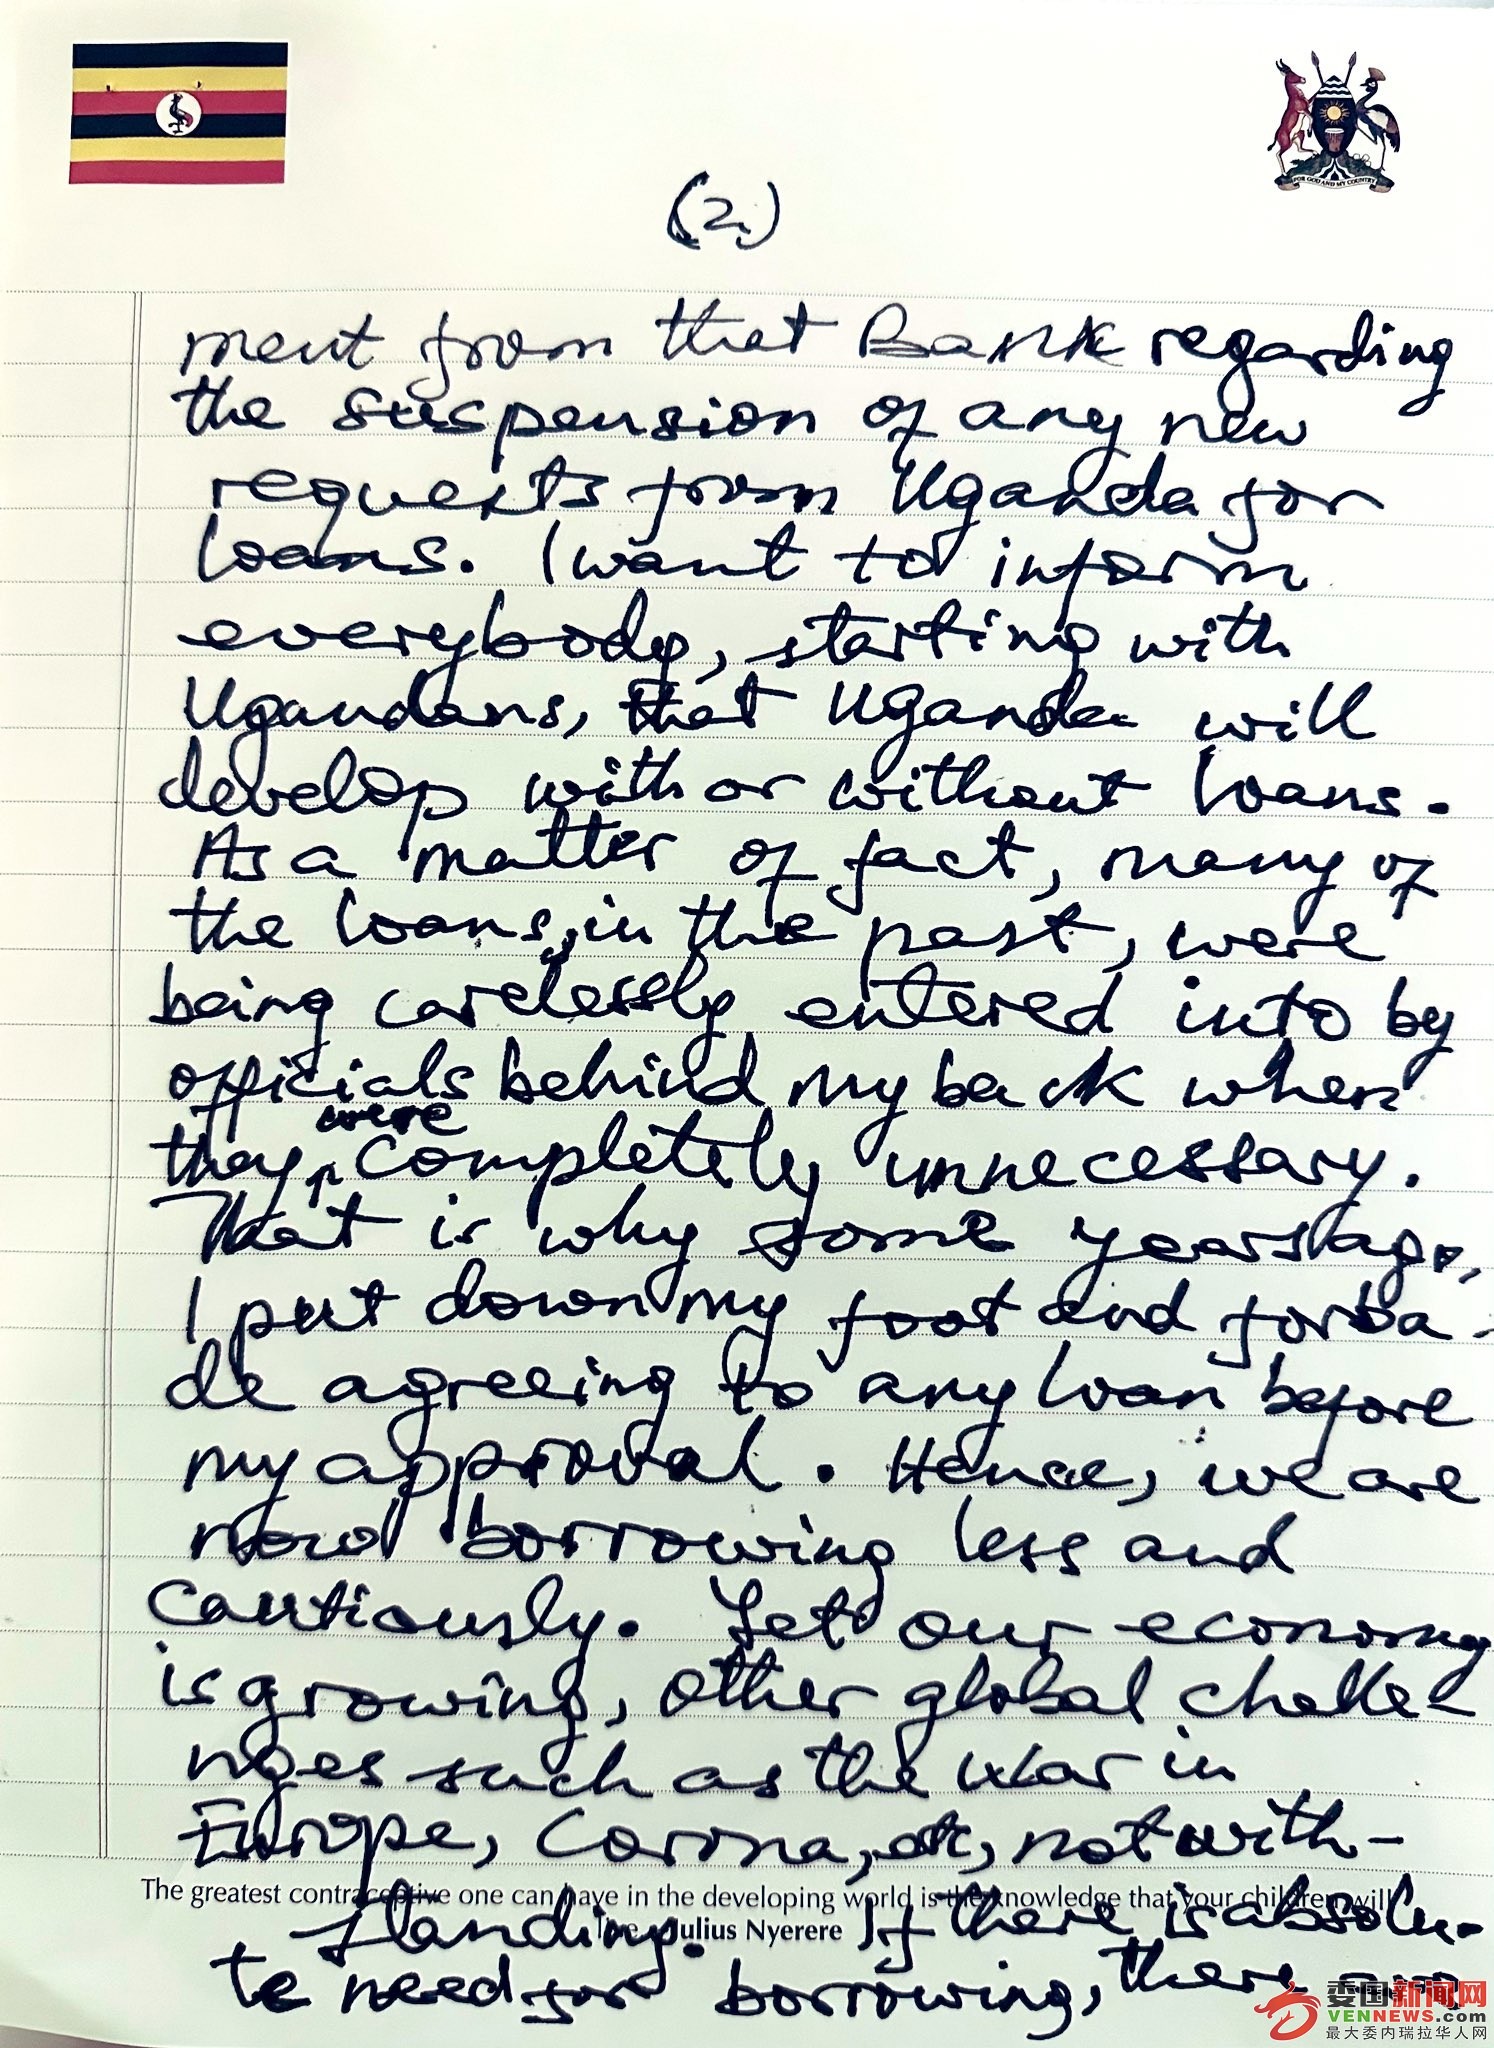 FOR GOD AND MY COUNTRY
(2)
ment from that Bank regarding
the suspension of any new
requests from Uganda for
loans. I want to inform
everybody, starting with
Ugandans, that Uganda will
develop with or without loans.
As a matter of fact, many of
the loans, in the past, were
being carelessly entered into by
officials behind my back when
they were completely unnecessary.
That is why some years ago,
I put down my foot and forba-
de agreeing to any loan before
my approval. Hence, we are
now borrowing less and
cautiously. Yet our economy
is growing, other global challe-
nges such as the war in
Europe, Corona, etc, notwith-
The greatest contraceptive one can have in the developing world is the knowledge that your children will
standing. If there is absolu-
live Julius Nyerere
te need for borrowing, there are
委国新闻网
VENNEWS.com
最大委内瑞拉华人网